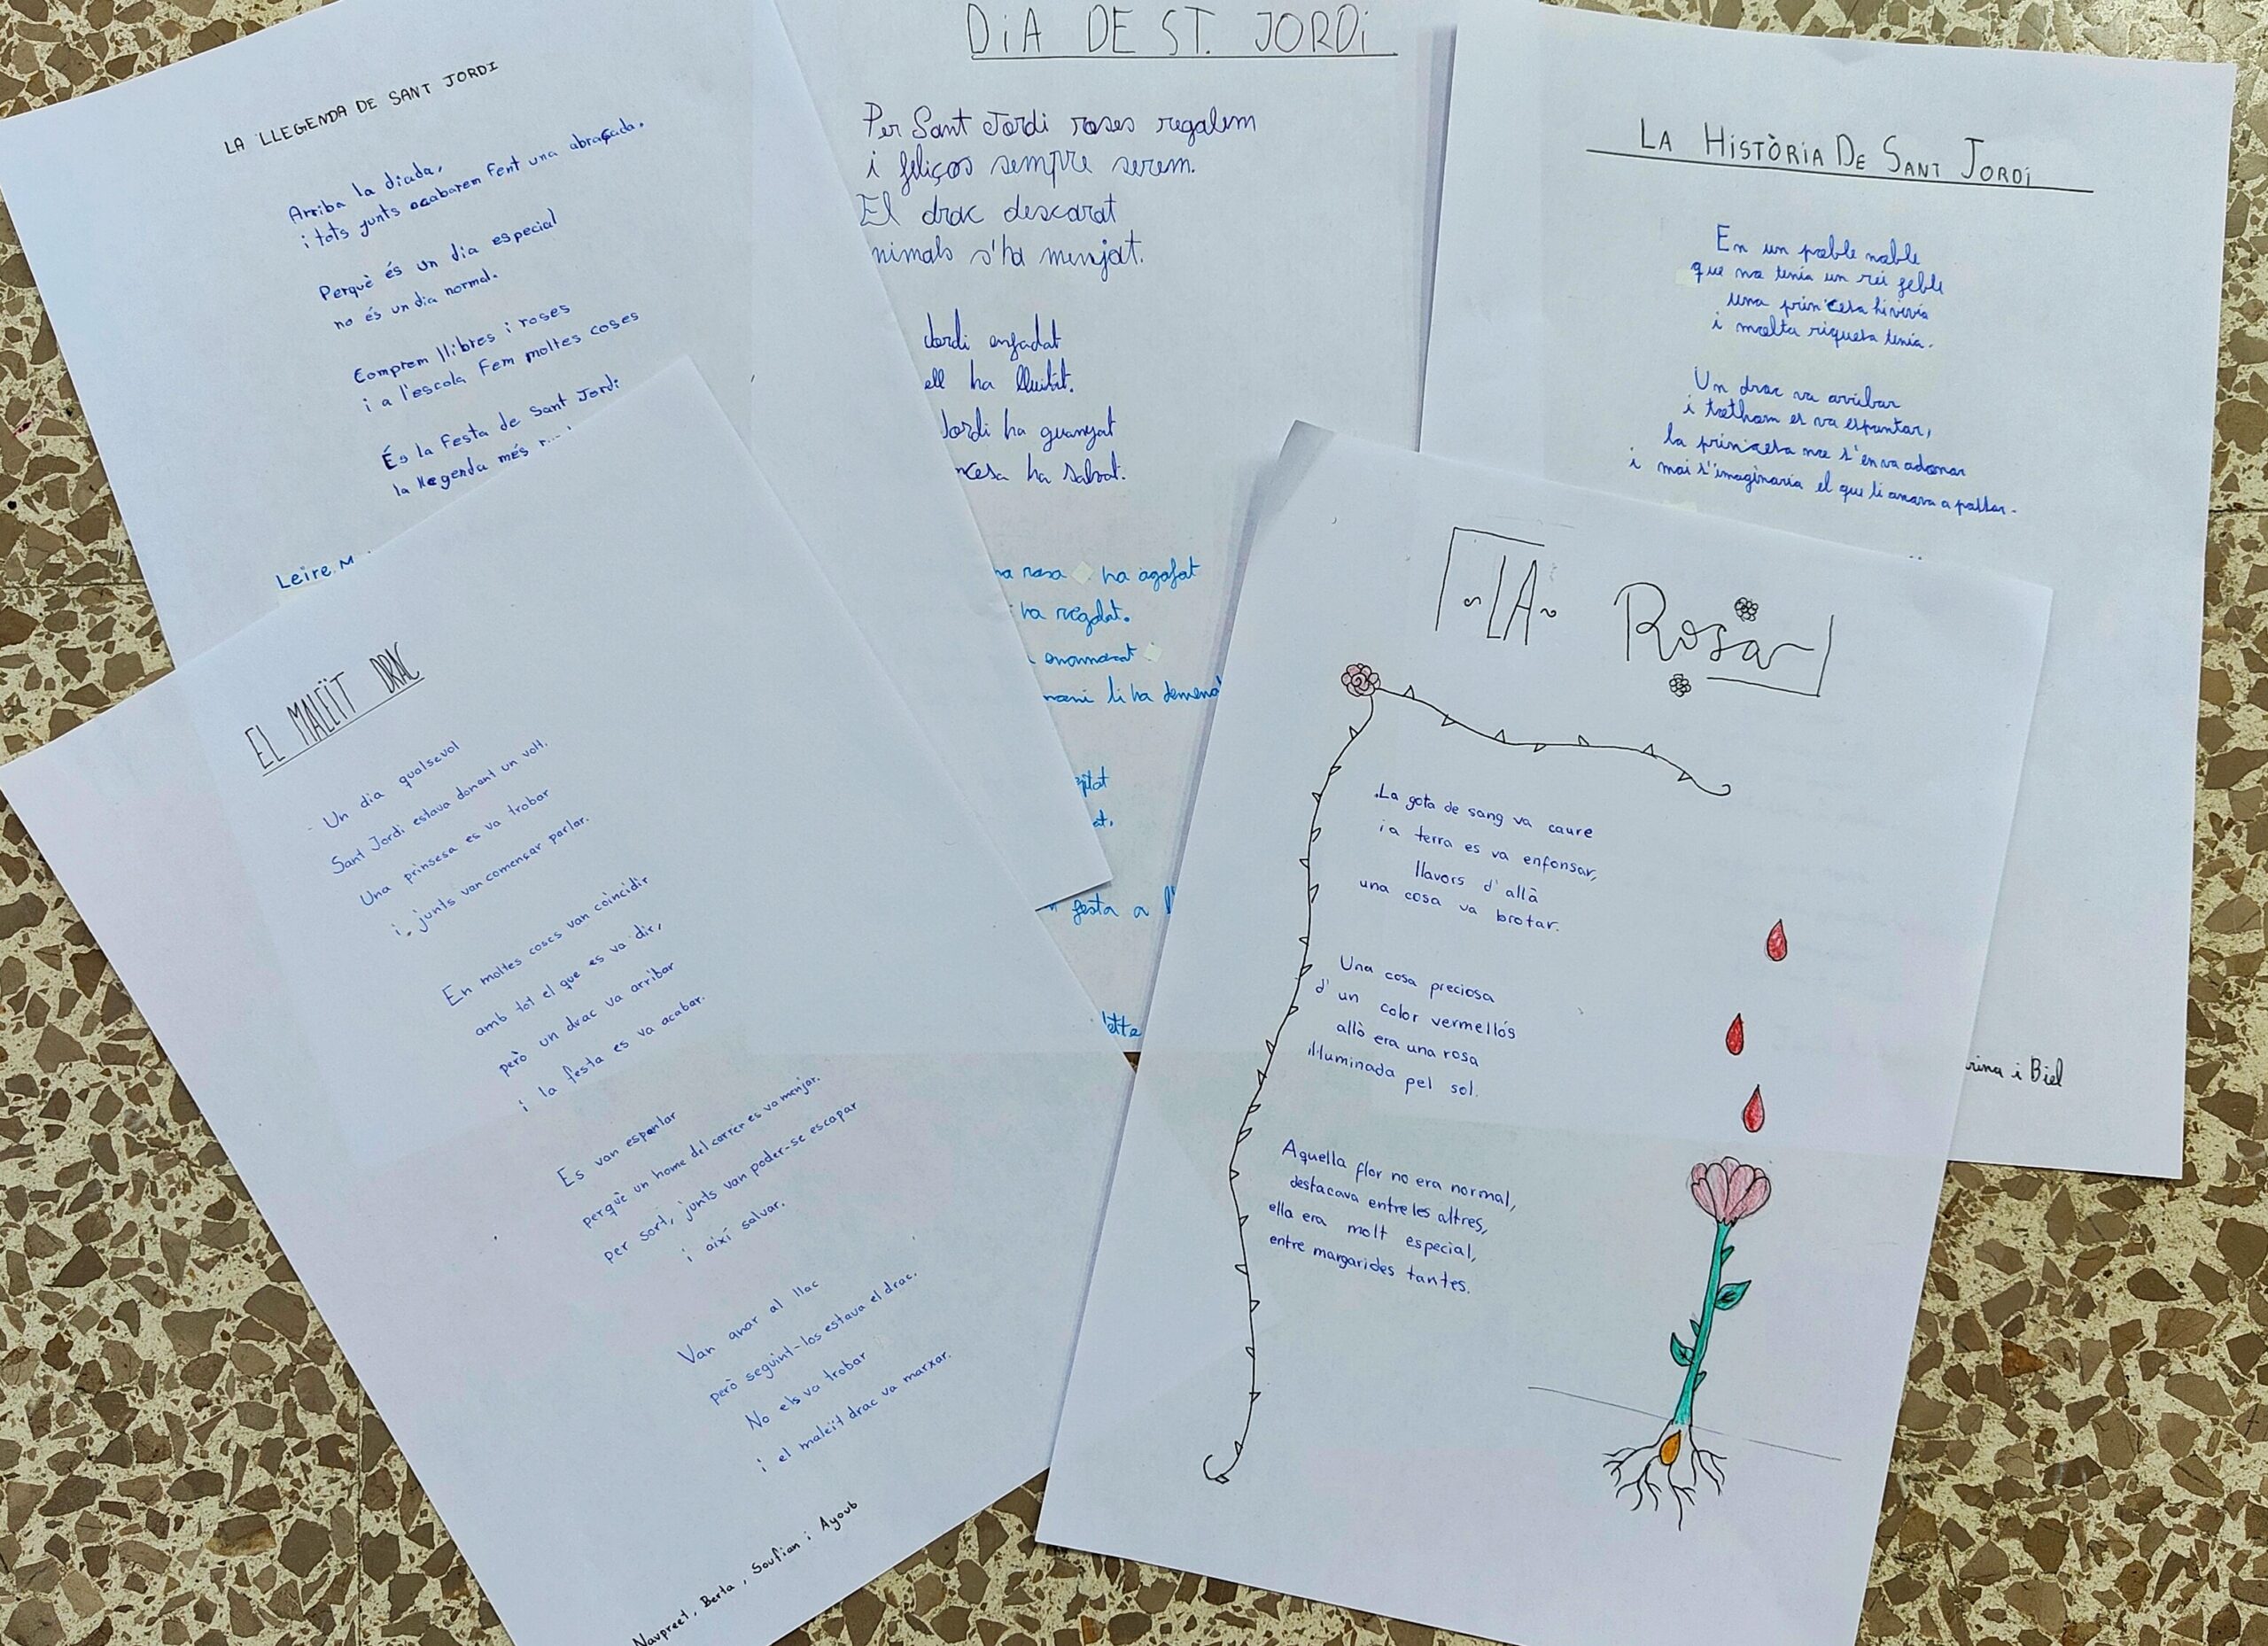 LA LLEGENDA DE SANT JORDI
Arriba la diada,
i tots junts acabarem fent una abraçada.
Perquè és un dia especial
no és un dia normal.
Comprem llibres i roses
i a l'escola fem moltes coses
És la festa de Sant Jordi
la llegenda més
Leire M
DiA DE ST. JORDi
Per Sant Jordi roses regalem
i feliços sempre serem.
El drac descarat
nimals s'ha menjat.
Jordi enfadat
ell ha lluitat.
Jordi ha guanyat
ncesa ha salvat.
na rosa ha agafat
i ha regalat.
enamorat
mani li ha demana
at.
festa a l'
lette
LA HiSTÒRiA DE SANT JORDi
En un poble noble
que no tenia un rei feble
una princesa hi vivia
i molta riquesa tenia.
Un drac va arribar
i tothom es va espantar,
la princesa no s'en va adonar
i mai s'imaginaria el que li anava a passar.
rina i Biel
EL MALEÏT DRAC
Un dia qualsevol
Sant Jordi estava donant un volt.
Una prinsesa es va trobar
i junts van començar parlar.
En moltes coses van coincidir
amb tot el que es va dir,
però un drac va arribar
i la festa es va acabar.
Es van espantar
perquè un home del carrer es va menjar.
per sort, junts van poder-se escapar
i així salvar.
Van anar al llac
però seguint-los estava el drac.
No els va trobar
i el maleït drac va marxar.
Navpreet, Berta, Soufian i Ayoub
LA Rosa
La gota de sang va caure
i a terra es va enfonsar,
llavors d'allà
una cosa va brotar.
Una cosa preciosa
d'un color vermellós
allò era una rosa
il·luminada pel sol.
Aquella flor no era normal,
destacava entre les altres,
ella era molt especial,
entre margarides tantes.